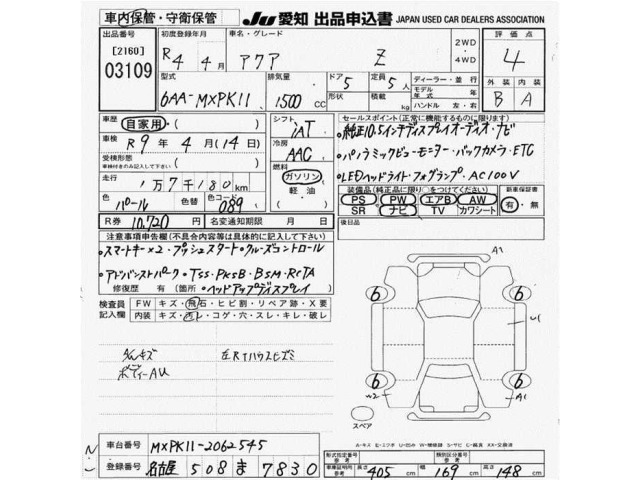 車内保管・守衛保管
JU 愛知 出品申込書 JAPAN USED CAR DEALERS ASSOCIATION
出品番号
[2160]
03109
初度登録年月
R4年4月
車名・グレード
アクア Z
2WD
4WD
評価点
4
型式
6AA-MXPK11
排気量
1500 CC
ドア 5
形状
定員 5人
積載 kg
ディーラー・並行
モデル年式 年
ハンドル 左・右
外装 内装
B A
車歴 自家用・( )
車検 R9年4月(14日)
受検形式
車検付きのみ記入して下さい ( )
走行 1万7千180km
色 パール
色替
色コード 089
シフト
IAT
冷房
AAC
燃料
ガソリン
軽油
( )
R券 10,720円
名変通知期限 月 日
セールスポイント(正常に機能するものに限り)
・純正10.5インチディスプレイオーディオ・ナビ
・パノラミックビューモニター・バックカメラ・ETC
・LEDヘッドライト・フォグランプ・AC100V
装備品(純正品に限り○をつけてください)
PS PW エアB AW
SR ナビ TV カワシート
新車保証書
有・無
後日品
注意事項申告欄(不具合内容等は具体的に記入して下さい)
・スマートキー×2・プッシュスタート・クルーズコントロール
・アドバンストパーク・TSS・PKSB・BSM・RCTA
・ヘッドアップディスプレイ
修復歴 有(箇所 )
検査員記入欄
FW キズ・飛石・ヒビ割・リペア跡・X要
内装 キズ・汚レ・コゲ・穴・スレ・キレ・破レ
ボディーAU
左RTハウスヒズミ
A1
6 6
U1
6 6
W2 A1
スペア
車台番号 MXPK11-2062545
登録番号 名古屋 508 ま 7830
形式指定番号
類別区分番号
長さ 405 cm 幅 169 cm 高さ 148 cm